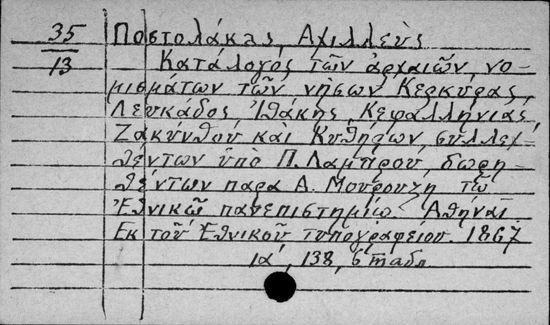 35 Ποστολάκας, Ἀχιλλεὺς
13 Κατάλογος τῶν ἀρχαιῶν, νο-
μισμάτων τῶν νήσων Κερκύρας,
Λευκάδος, Ἰθάκης, Κεφαλληνίας,
Ζακύνθου καὶ Κυθήρων, συλλεχ-
θέντων ὑπὸ Π. Λαμπρου, δωρη-
θέντων παρα Α. Μουρουζη τῷ
Ἐθνικῷ πανεπιστημίῳ. Ἀθηναῖ.
Εκ τοῦ Ἐθνικοῦ τυπογραφειου. 1867
ια', 138, 6 παδλ